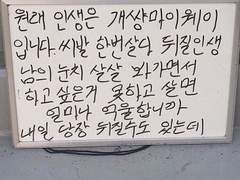 원래 인생은 개썅마이웨이
입니다 씨발 한번살다 뒤질인생
남의 눈치 살살 봐가면서
하고 싶은거 못하고 살면
얼마나 억울합니까
내일 당장 뒤질수도 있는데